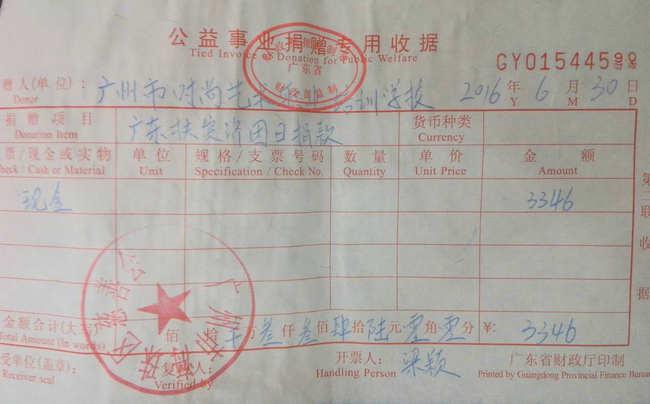 公益事业捐赠专用收据
Tied Invoice of Donation for Public Welfare
广东省
财政部监制
GY01544599
赠人(单位): 广州市时尚艺术 培训学校 2016 年 6 月 30 日
Donor Y M D
捐赠项目 广东扶贫济困日捐款 货币种类
Donation Item Currency
票/现金或实物 单位 规格/支票号码 数量 单价 金额
Check / Cash or Material Unit Specification / Check No. Quantity Unit Price Amount
现金 3346
第
联
收
据
金额合计(大写) 佰 拾 万 叁 仟 叁 佰 肆 拾 陆 元 零 角 零 分 ¥: 3346
Total Amount (in words)
受单位(盖章): 复核人: 开票人: 梁颖 广东省财政厅印制
Receiver seal Verified by Handling Person Printed by Guangdong Provincial Finance Bureau